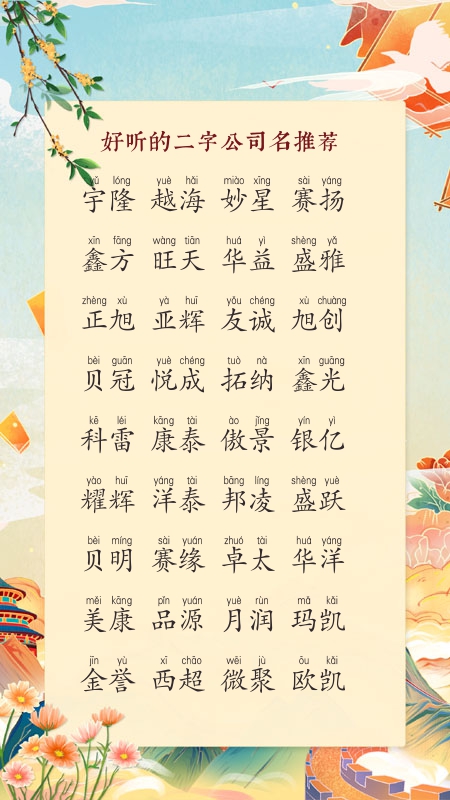 好听的二字公司名推荐
yǔ lóng yuè hǎi miào xīng sài yáng
宇隆 越海 妙星 赛扬
xīn fāng wàng tiān huá yì shèng yǎ
鑫方 旺天 华益 盛雅
zhèng xù yà huī yǒu chéng xù chuàng
正旭 亚辉 友诚 旭创
bèi guān yuè chéng tuò nà xīn guāng
贝冠 悦成 拓纳 鑫光
kē léi kāng tài ào jǐng yín yì
科雷 康泰 傲景 银亿
yào huī yáng tài bāng líng shèng yuè
耀辉 洋泰 邦凌 盛跃
bèi míng sài yuán zhuó tài huá yáng
贝明 赛缘 卓太 华洋
měi kāng pǐn yuán yuè rùn mǎ kǎi
美康 品源 月润 玛凯
jīn yù xī chāo wēi jù ōu kǎi
金誉 西超 微聚 欧凯